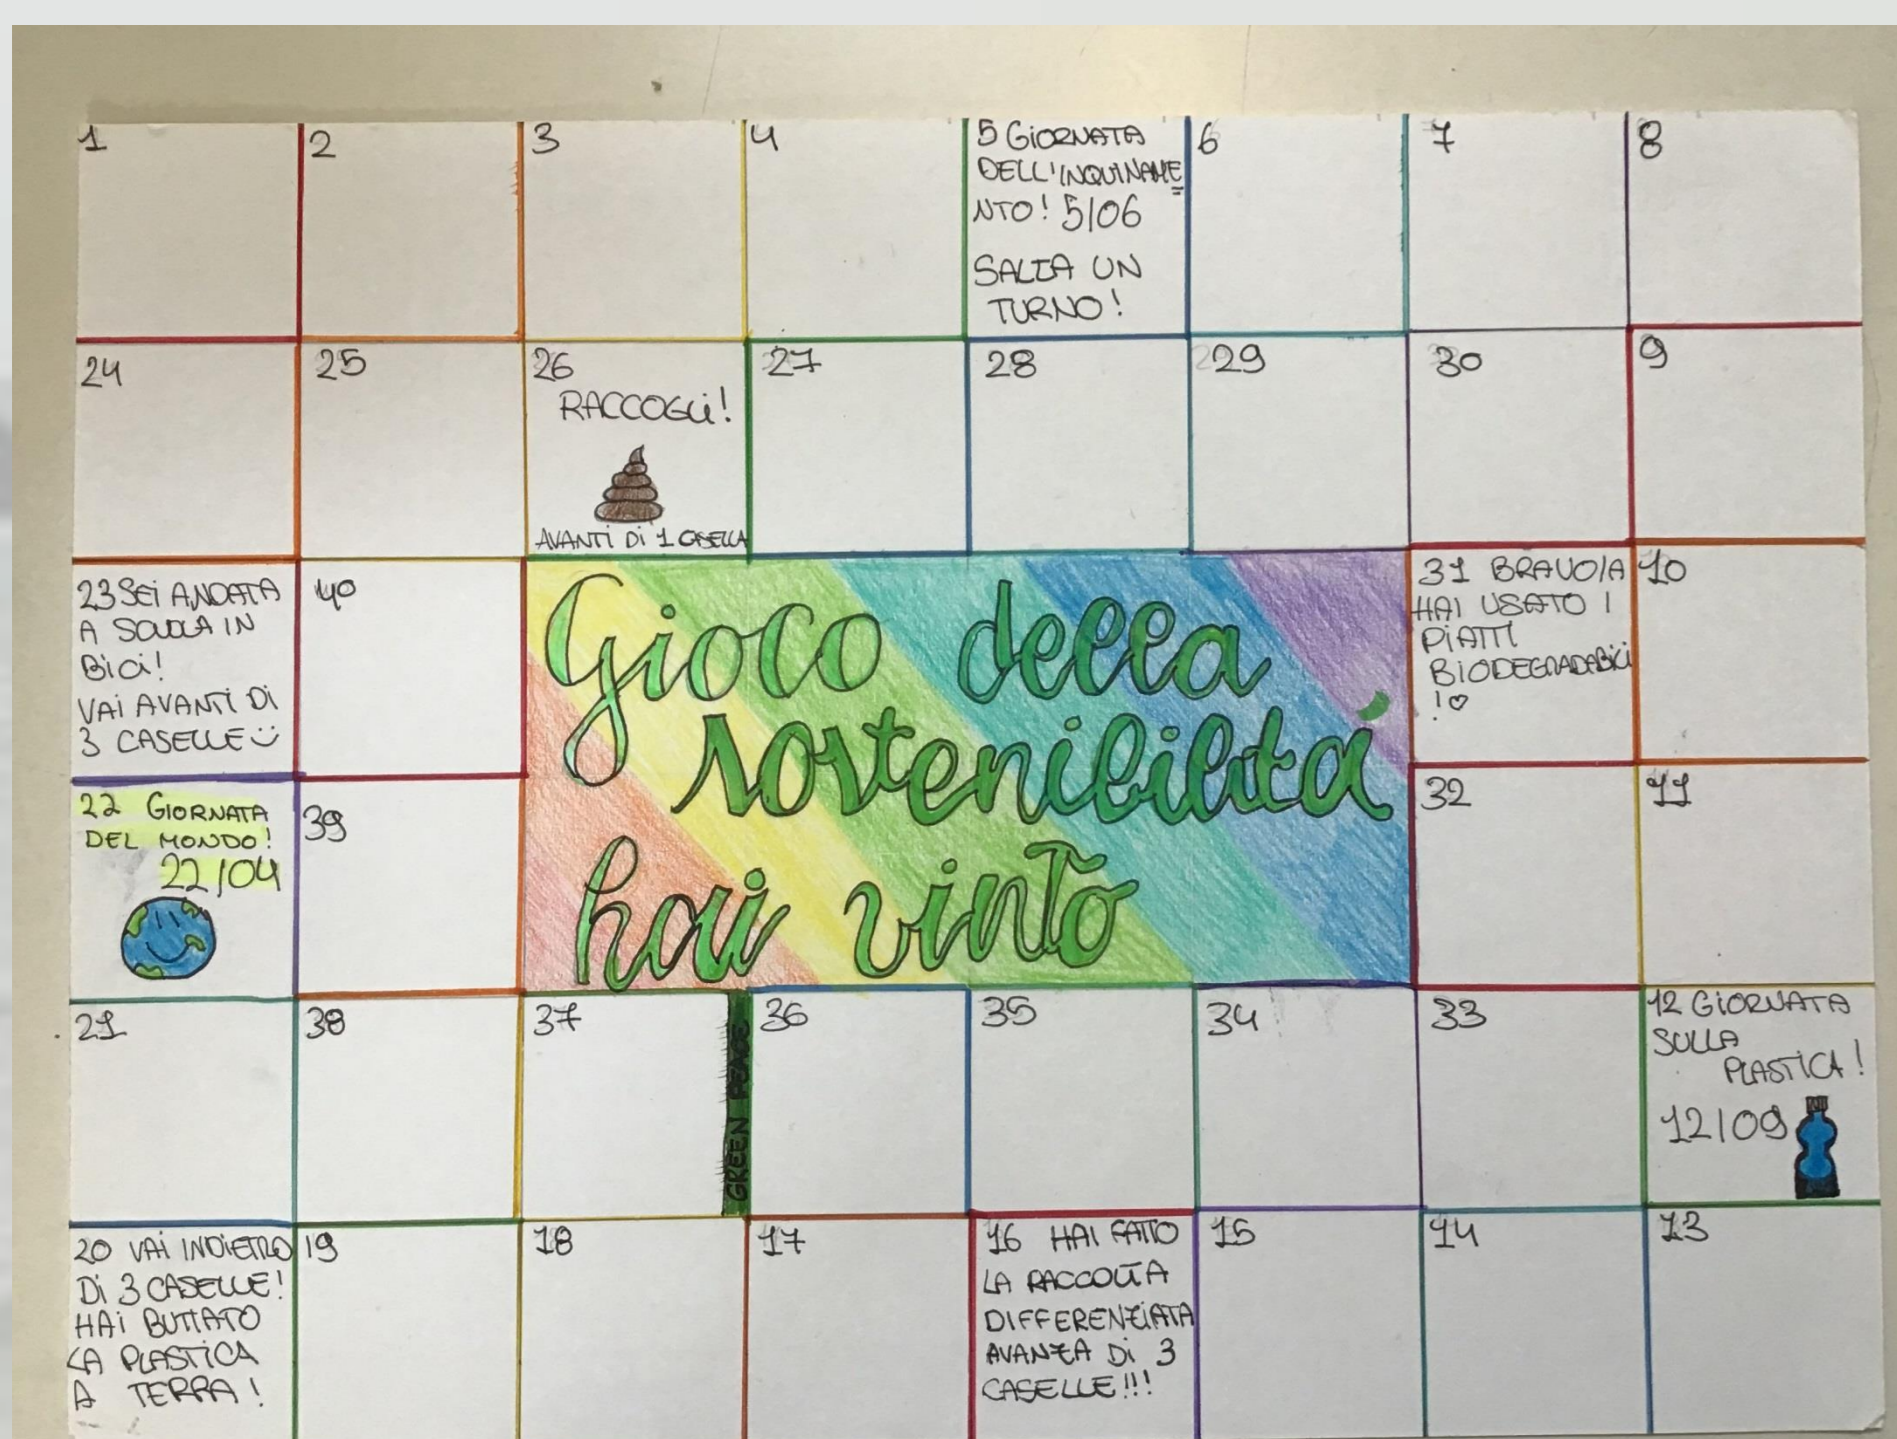 1
2
3
4
5 GIORNATA
DELL'INQUINAME
NTO! 5/06
SALTA UN
TURNO!
6
7
8
24
25
26
RACCOGLI!
AVANTI DI 1 CASELLA
27
28
29
30
9
23 SEI ANDATA
A SCUOLA IN
BICI!
VAI AVANTI DI
3 CASELLE
40
Gioco della
sostenibilità
hai vinto
31 BRAVO/A
HAI USATO I
PIATTI
BIODEGRADABILI
!
10
22 GIORNATA
DEL MONDO!
22/04
39
32
11
21
38
37
GREEN PEACE
36
35
34
33
12 GIORNATA
SULLA
PLASTICA!
12/09
20 VAI INDIETRO
DI 3 CASELLE!
HAI BUTTATO
LA PLASTICA
A TERRA!
19
18
17
16 HAI FATTO
LA RACCOLTA
DIFFERENZIATA
AVANZA DI 3
CASELLE!!!
15
14
13